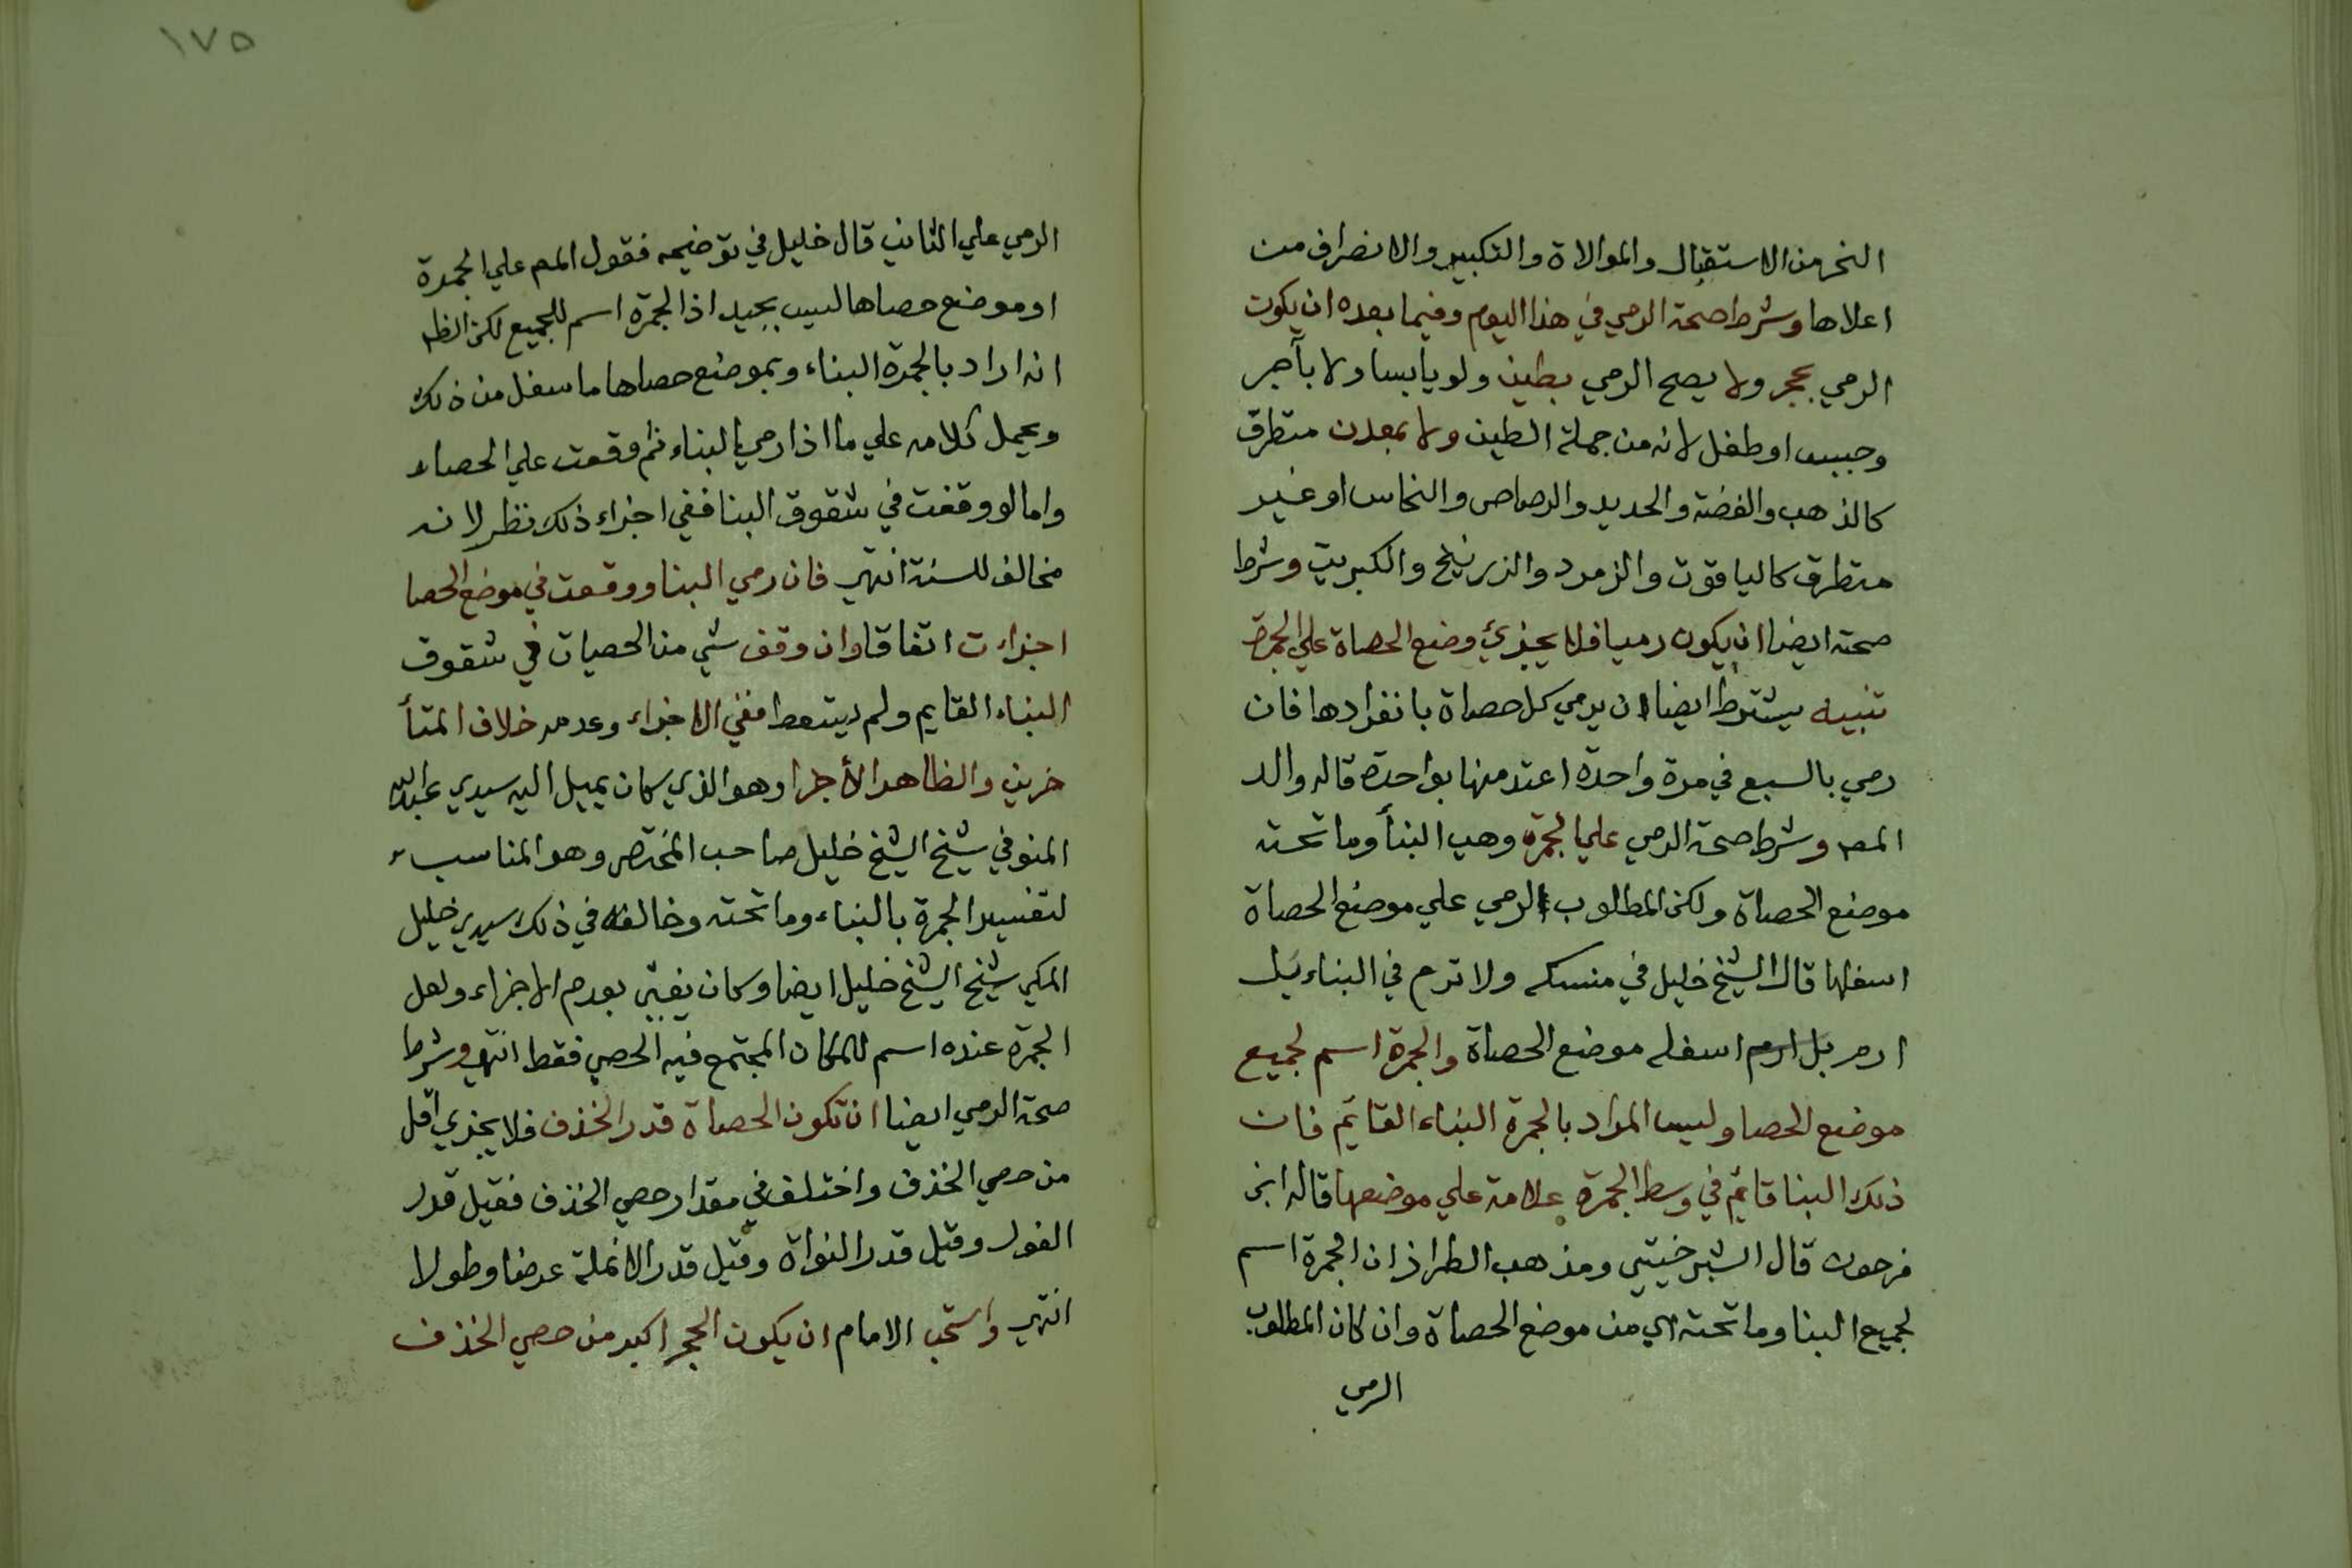 النحر من الاستقبال والموالاة والتكبير والانصراف من
اعلاها وشرط صحة الرمي في هذا اليوم وفيما بعده ان يكون
الرمي بحجر ولا يصح الرمي بطين ولو يابسا ولا بآجر
وجبس او طفل لانه من جملة الطين ولا بمعدن متطرق
كالذهب والفضة والحديد والرصاص والنحاس او غير
متطرق كالياقوت والزمرد والزرنيخ والكبريت وشرط
صحته ايضا ان يكون رميا فلا يجزئ وضع الحصاة علي الجمرة
تنبيه يشترط ايضا ان يرمي كل حصاة بانفرادها فان
رمي بالسبع في مرة واحدة اعتد منها بواحدة قاله والد
المص وشرط صحة الرمي علي الجمرة وهي البنأ وما تحته
موضع الحصاة ولكن المطلوب الرمي علي موضع الحصاة
اسفلها قال الشيخ خليل في منسكه ولا ترم في البناء بل
ارم بل ارم اسفله موضع الحصاة والجمرة اسم لجميع
موضع الحصا وليس المراد بالجمرة البناء القائم فان
ذلك البنا قائم في وسط الجمرة علامة علي موضعها قاله ابن
فرحون قال الشبرخيتي ومذهب الطراز ان الجمرة اسم
لجميع البنا وما تحته اي من موضع الحصاة وان كان المطلوب
الرمي
١٧٥
الرمي علي الثاني قال خليل في توضيحه فقول المص علي الجمرة
او موضع حصاها ليس بجيد اذ الجمرة اسم للجميع لكن الظ
انه اراد بالجمرة البناء وبموضع حصاها ما سفل من ذلك
ويحمل كلامه علي ما اذا رمي بالبناء ثم وقعت علي الحصاء
واما لو وقفت في شقوق البنا ففي اجزاء ذلك نظر لانه
مخالف للسنة انتهي فان رمي البنا ووقعت في موضع الحصا
اجزاءت اتفاقا وان وقف شي من الحصيات في شقوق
البناء القايم ولم يسقط ففي الاجزاء وعدمه خلاف المتأ
خرين والظاهر الأجزا وهو الذي كان يميل اليه سيدي عبدالله
المنوفي شيخ الشيخ خليل صاحب المختصر وهو المناسب
لتفسير الجمرة بالبناء وما تحته وخالفه في ذلك سيدي خليل
المكي شيخ الشيخ خليل ايضا وكان يفتي بعدم الاجزاء ولعل
الجمرة عنده اسم للمكان المجتمع فيه الحصي فقط انتهي وشرط
صحة الرمي ايضا ان تكون الحصاة قدر الخذف فلا يجزي اقل
من حصي الخذف واختلف في مقدار حصي الخذف فقيل قدر
الفول وقيل قدر النواة وقيل قدر الانملة عرضا وطولا
انتهي واستحب الامام ان يكون الحجر اكبر من حصي الخذف